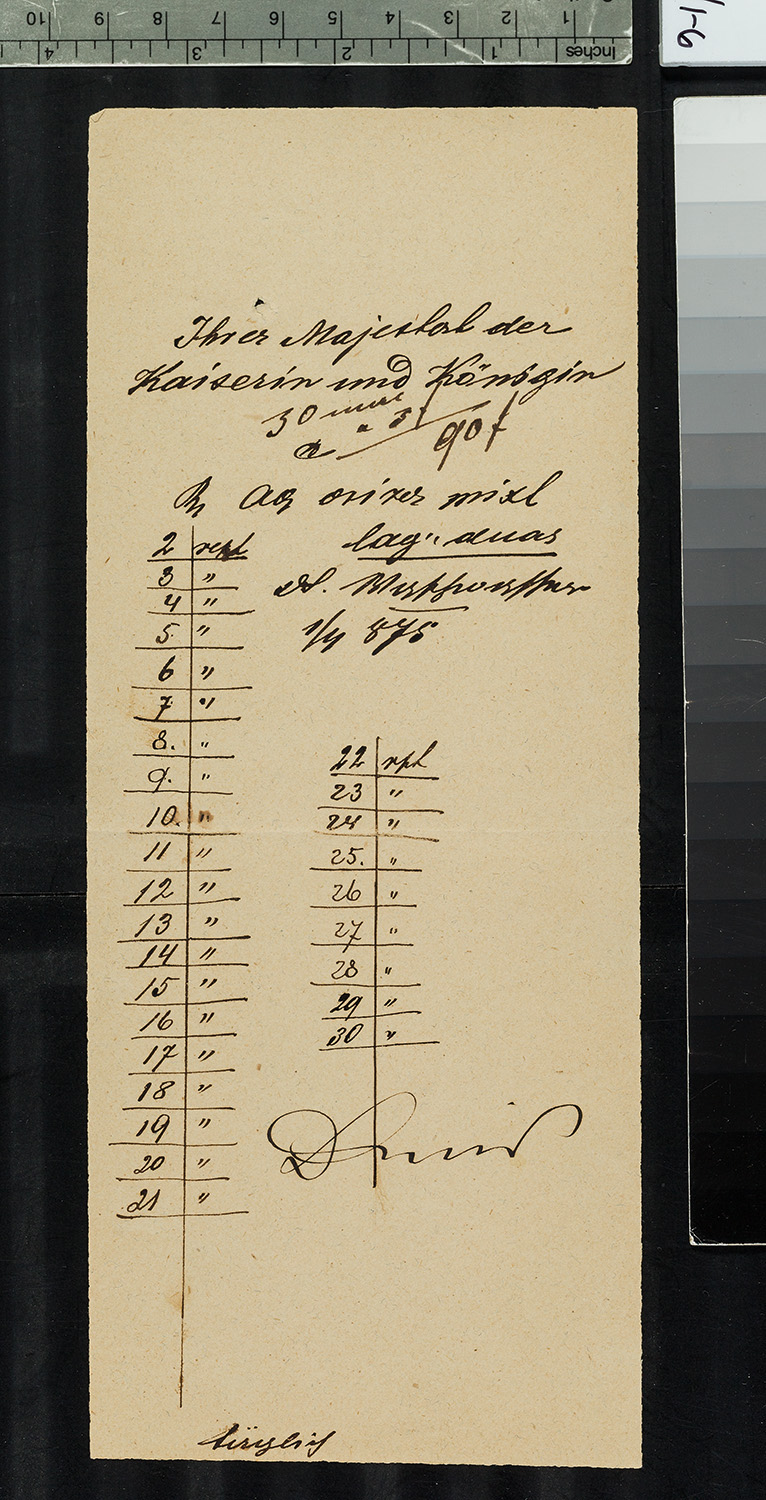 Ihrer Majestät der
Kaiserin und Königin
30
à 3f
90 f
Rp Aq
lag. duas
1/4 875
2 rept
3 "
4 "
5 "
6 "
7 "
8. "
9. "
10. "
11 "
12 "
13 "
14 "
15 "
16 "
17 "
18 "
19 "
20 "
21 "
22 rpt
23 "
24 "
25. "
26 "
27 "
28 "
29 "
30 "
täglich
Inches 1 2 3 4
1 2 3 4 5 6 7 8 9 10
/1-6